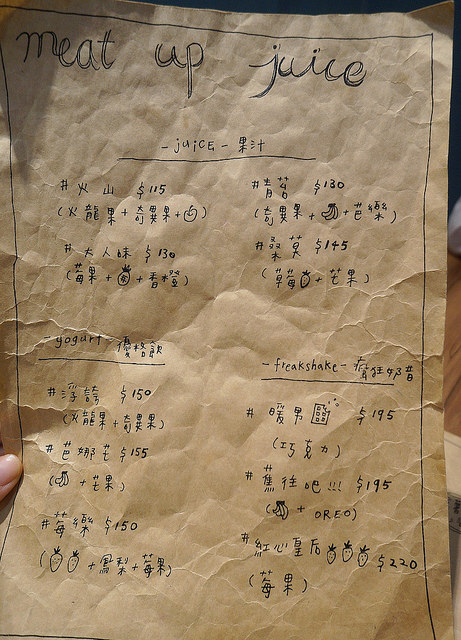 meat up juice
- juice - 果汁
#火山 $115
(火龍果+奇異果+)
#大人味 $130
(莓果++香橙)
#青苔 $130
(奇異果++芭樂)
#桑莫 $145
(草莓+芒果)
- yogurt - 優格飲
#浮誇 $150
(火龍果+奇異果)
#芭娜芒 $155
(+芒果)
#莓樂 $150
(+鳳梨+莓果)
- freakshake - 瘋狂奶昔
#暖男 $195
(巧克力)
#蕉往吧!!! $195
(+OREO)
#紅心皇后 $220
(莓果)